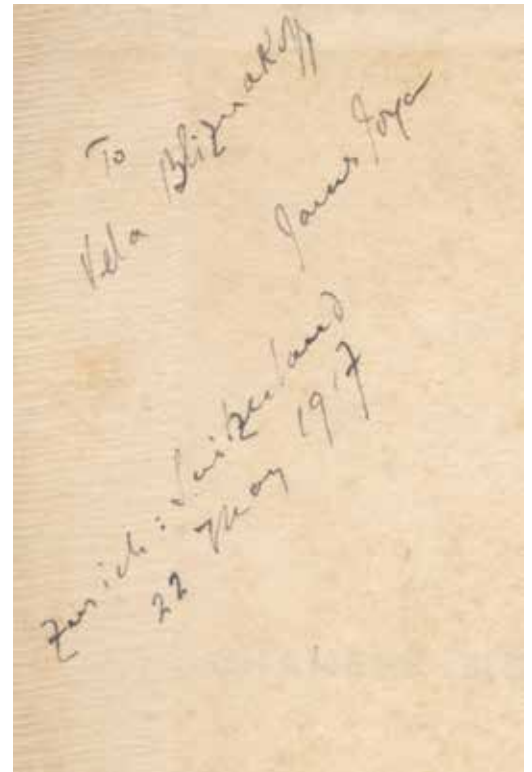 To
Vela Bliznakoff
James Joyce
Zurich: Switzerland
22 May 1917